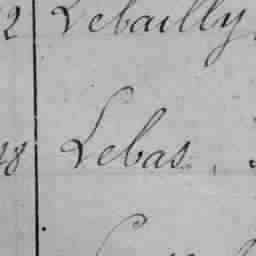 2 Lebailly
18 Lebas.